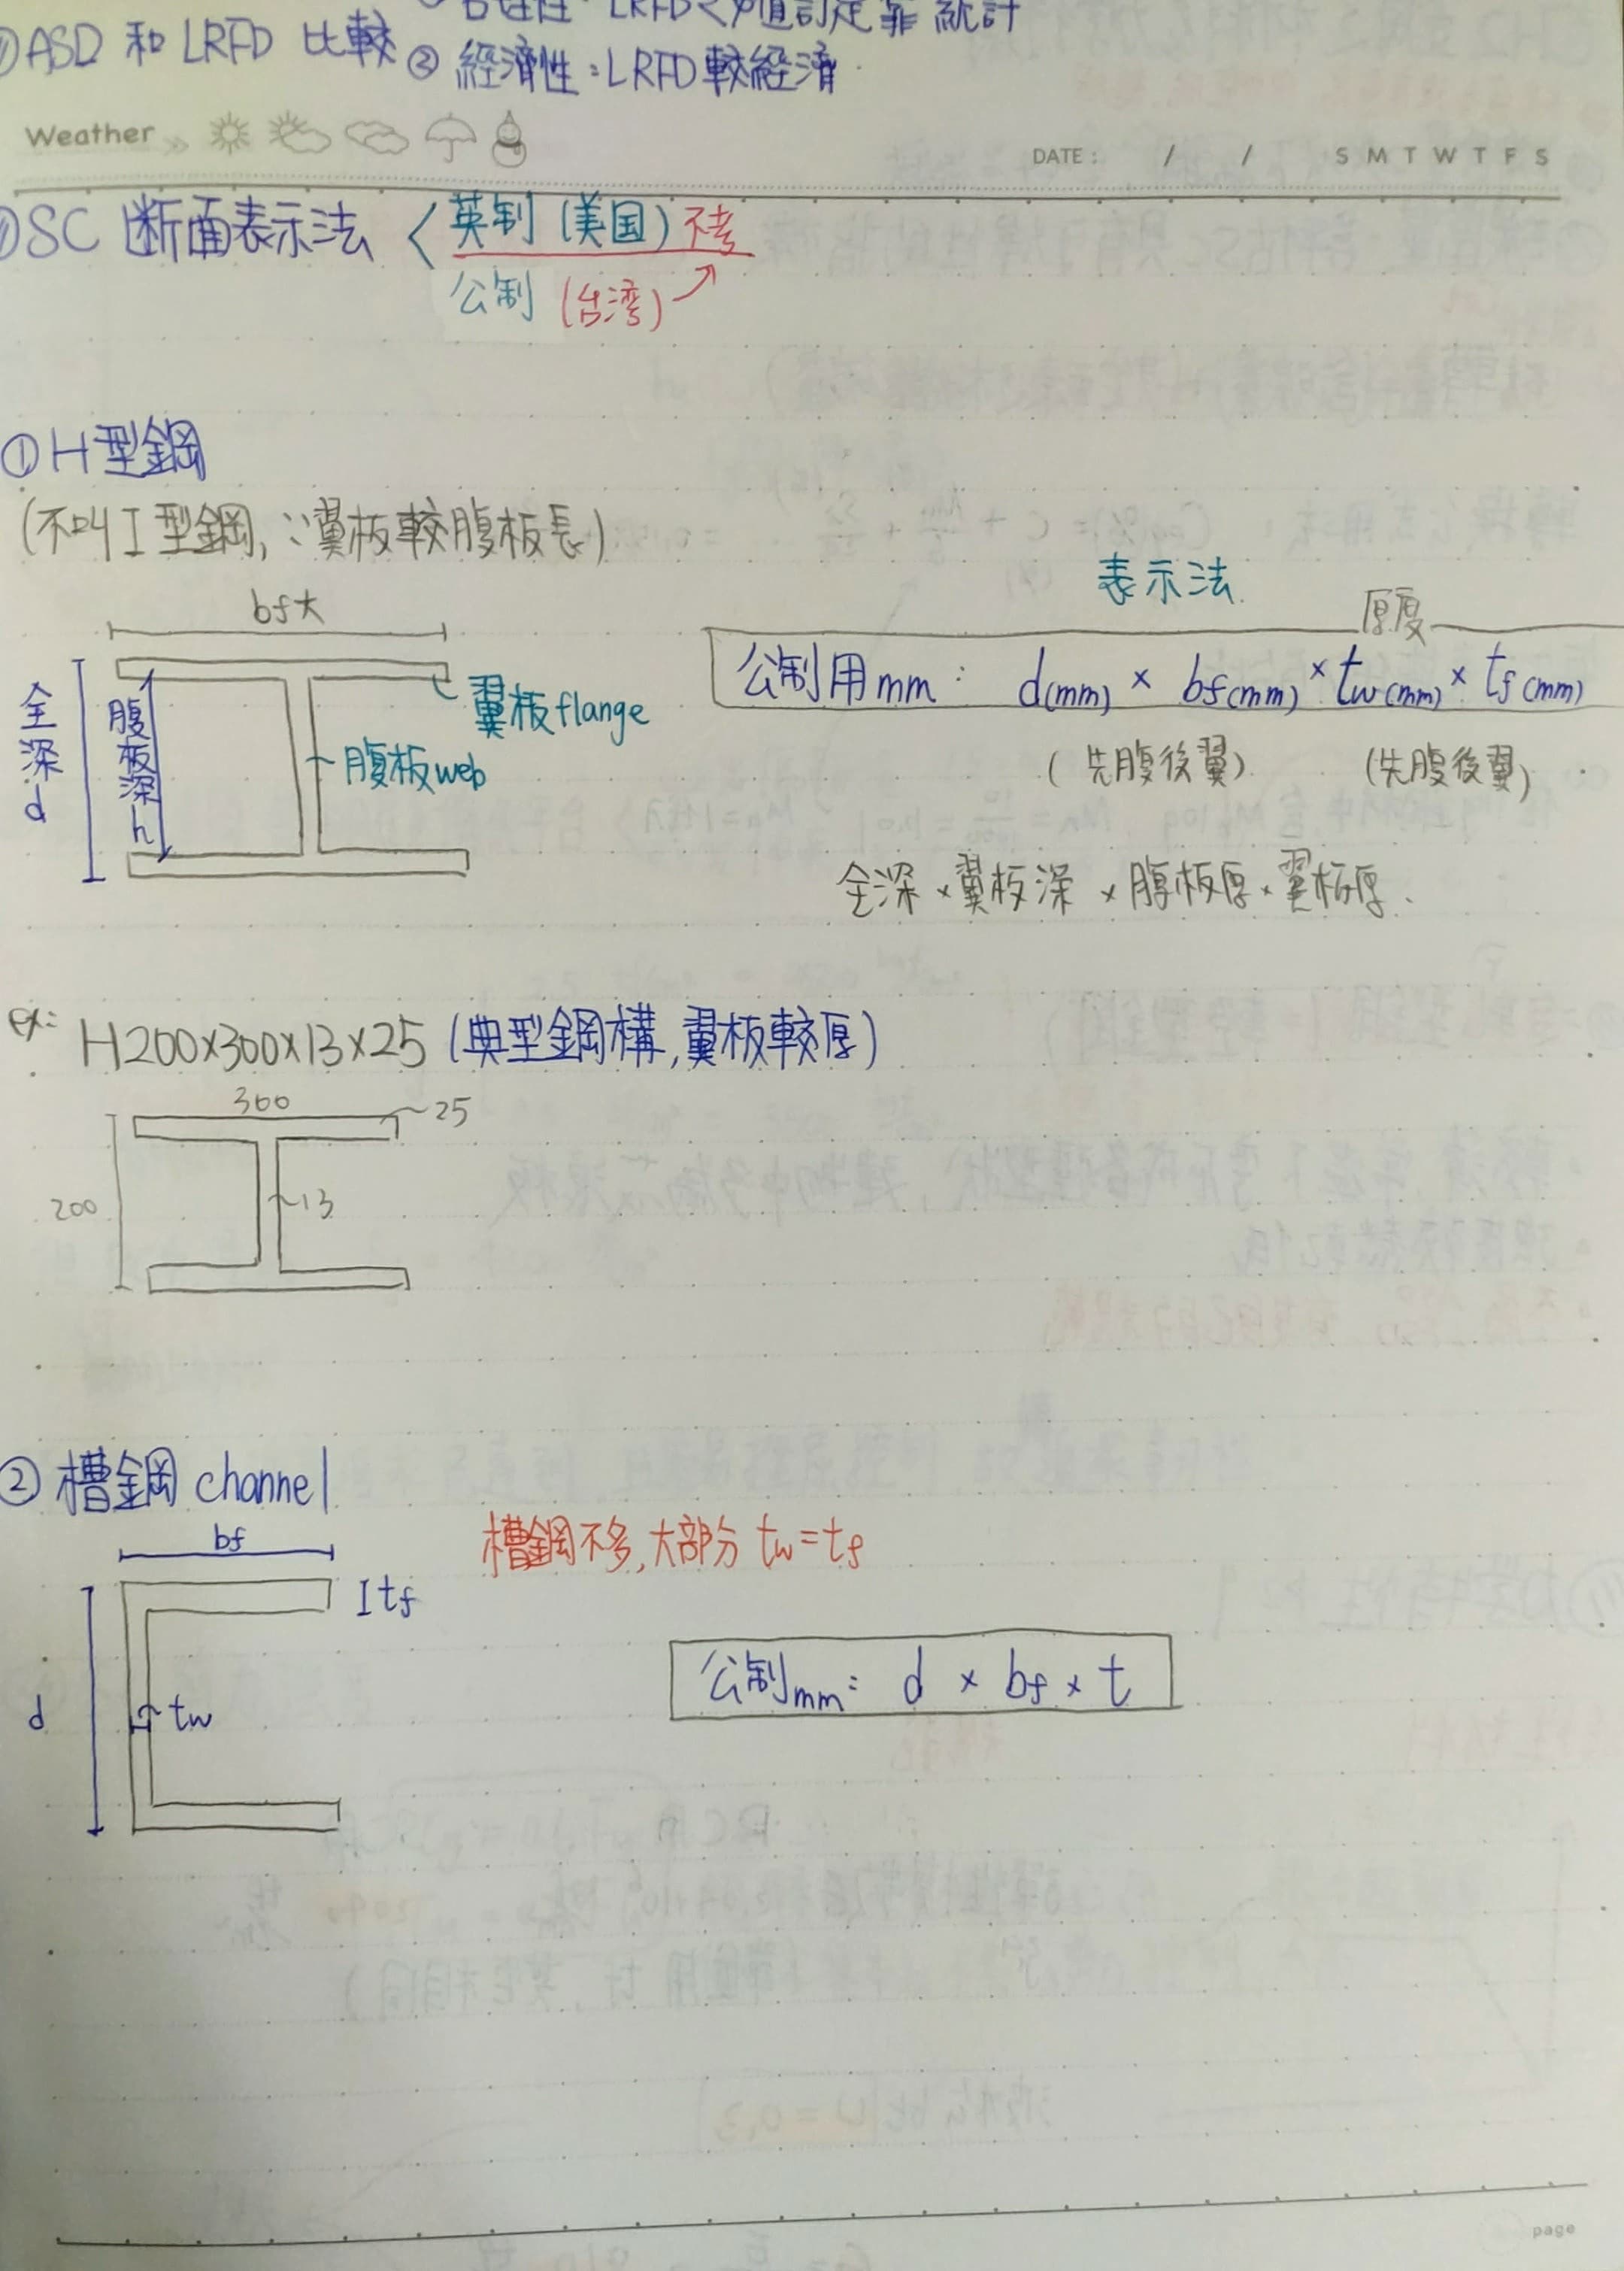 ASD 和 LRFD 比較
② 經濟性:LRFD較經濟
Weather
DATE : / / S M T W T F S
SC 断面表示法 < 英制 (美国) 不考
公制 (台湾)
① H型鋼
(不叫I型鋼,∵翼板較腹板長)
表示法
bf大
厚度
公制用mm: d(mm) × bf(mm) × tw(mm) × tf(mm)
全深d
腹板深h
翼板flange
腹板web
(先腹後翼) (先腹後翼)
全深×翼板深×腹板厚×翼板厚.
ex: H200×300×13×25 (典型鋼構,翼板較厚)
300
25
200
13
② 槽鋼 channel
bf
槽鋼不多,大部分 tw=tf
tf
d
tw
公制mm: d × bf × t
page